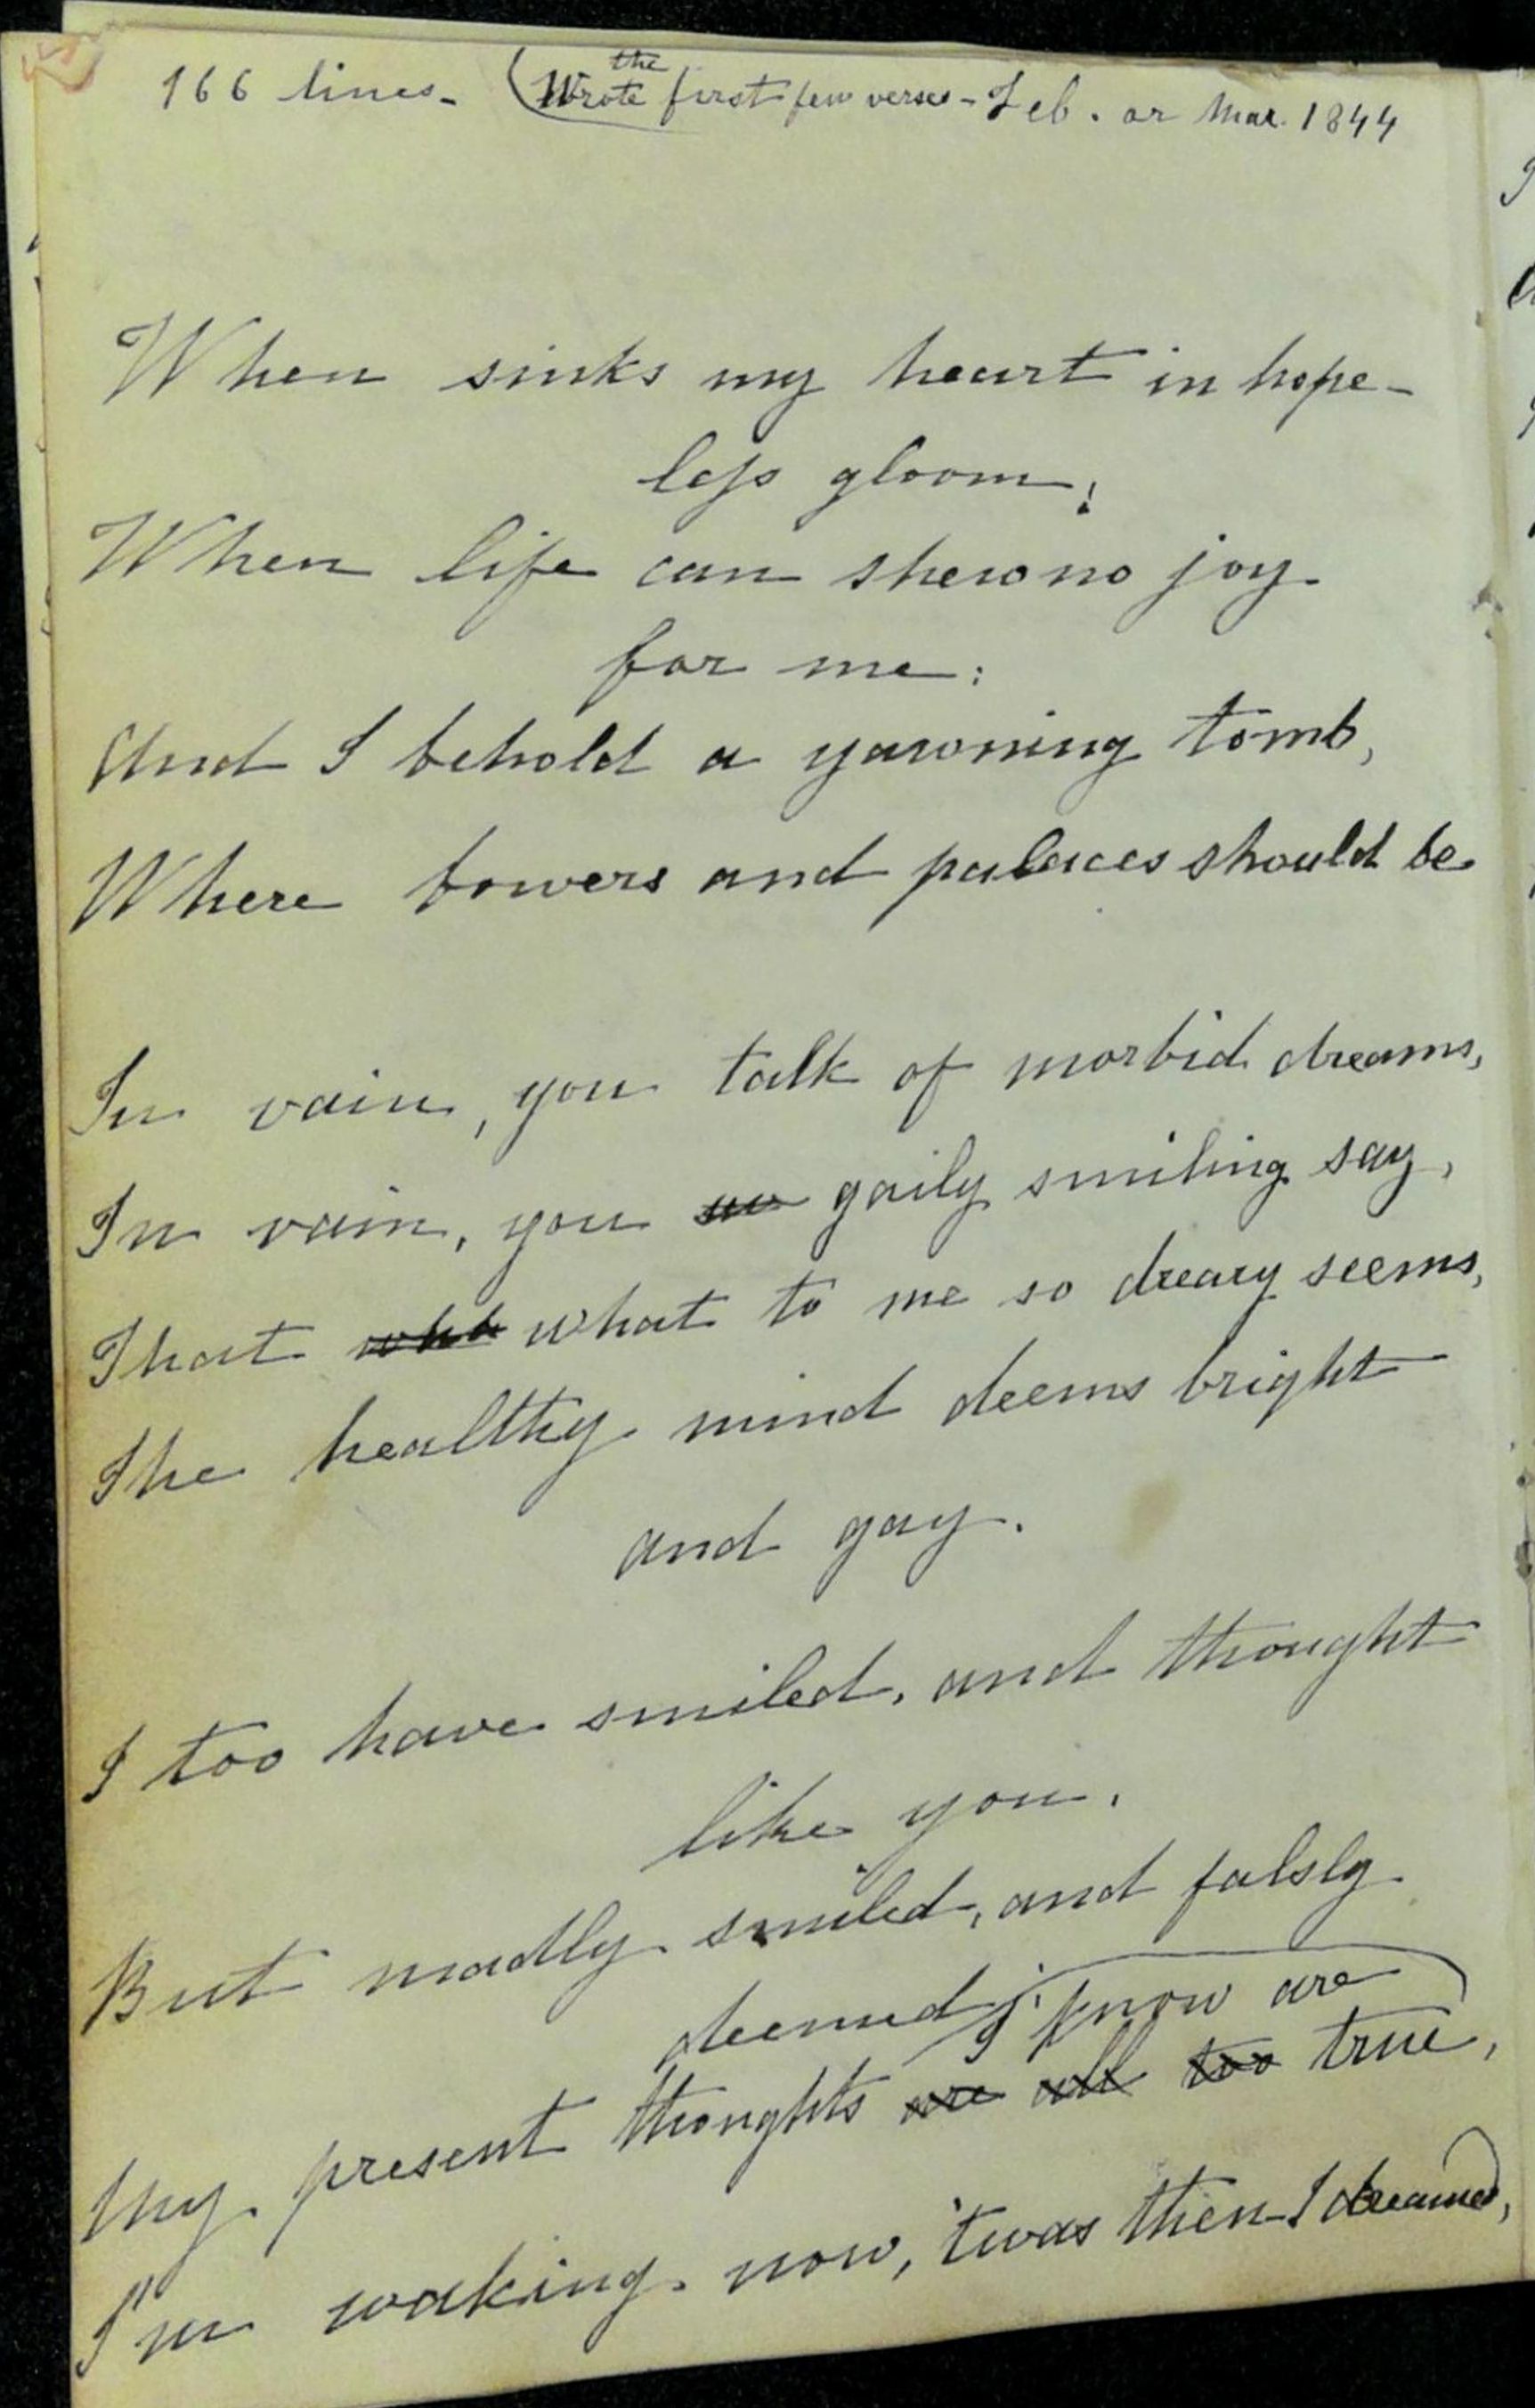 166 lines - (Wrote the first few verses - Feb. or Mar. 1844
When sinks my heart in hope-
less gloom;
When life can shew no joy
for me:
And I behold a yawning tomb,
Where bowers and palaces should be
In vain, you talk of morbid dreams,
In vain, you so gaily smiling say,
That what what to me so dreary seems,
The healthy mind deems bright
and gay.
I too have smiled, and thought
like you.
But madly smiled, and falsly
deemed;
I know are
My present thoughts are all too true,
I'm waking now, 'twas then I dreamed,